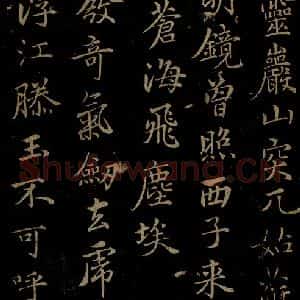 靈巖山突兀姑
明鏡曾照西子来
蒼海飛塵埃
發奇氣劍去虎
浮江滕王不可呼
Shufawang.cn